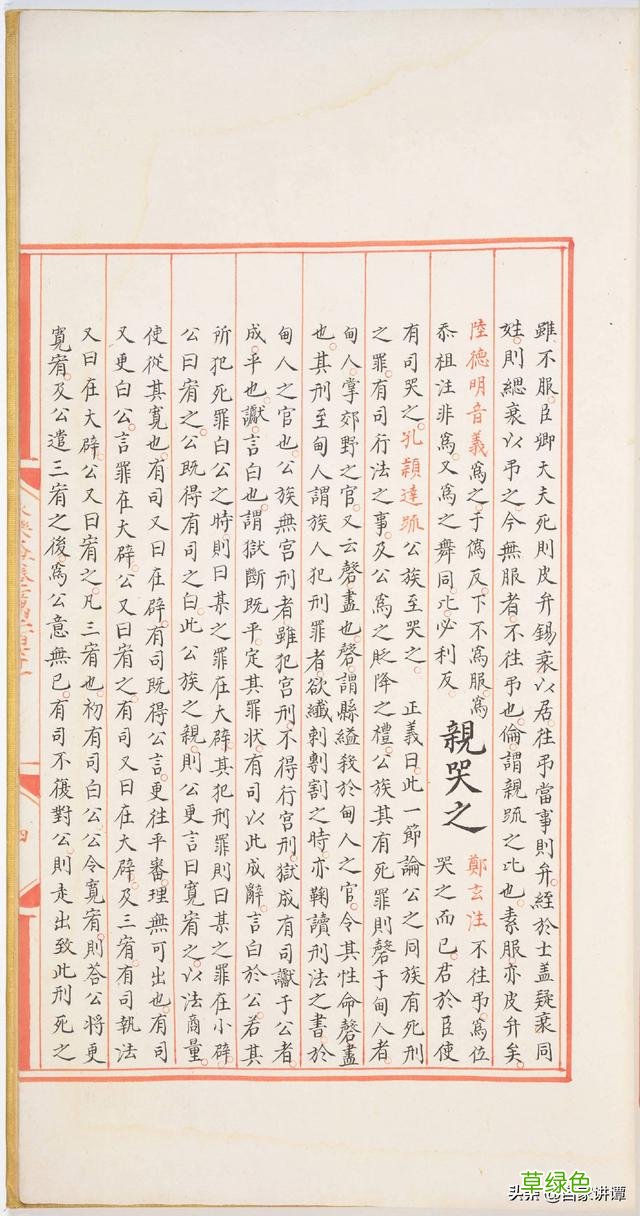 雖不服臣卿大夫死則皮弁錫衰以居往弔當事則弁絰於士蓋疑衰同
姓則緦衰以弔之今無服者不往弔也倫謂親疏之比也素服亦皮弁矣
陸德明音義為之于偽反下不為服為
忝祖注非為又為之舞同比必利反
親哭之
鄭玄注不往弔為位
哭之而已君於臣使
有司哭之孔穎達疏公族至哭之 正義曰此一節論公之同族有死刑
之罪有司行法之事及公為之貶降之禮公族其有死罪則磬于甸人者
甸人掌郊野之官又云磬盡也磬謂縣縊殺於甸人之官令其性命磬盡
也其刑至甸人謂族人犯刑罪者欲纖刺劓割之時亦鞠讀刑法之書於
甸人之官也公族無宮刑者雖犯宮刑不得行宮刑獄成有司讞于公者
成平也讞言白也謂獄斷既平定其罪狀有司以此成辭言白於公若其
所犯死罪白公之時則曰某之罪在大辟其犯刑罪則曰某之罪在小辟
公曰宥之公既得有司之白此公族之親則公更言曰寬宥之以法商量
使從其寬也有司又曰在辟有司既得公言更往平審理無可出也有司
又更白公言罪在大辟公又曰宥之有司又曰在大辟及三宥有司執法
又曰在大辟公又曰宥之凡三宥也初有司白公公令寬宥則答公將更
寬宥及公遣三宥之後為公意無已有司不復對公則走出致此刑死之
四
草绿色